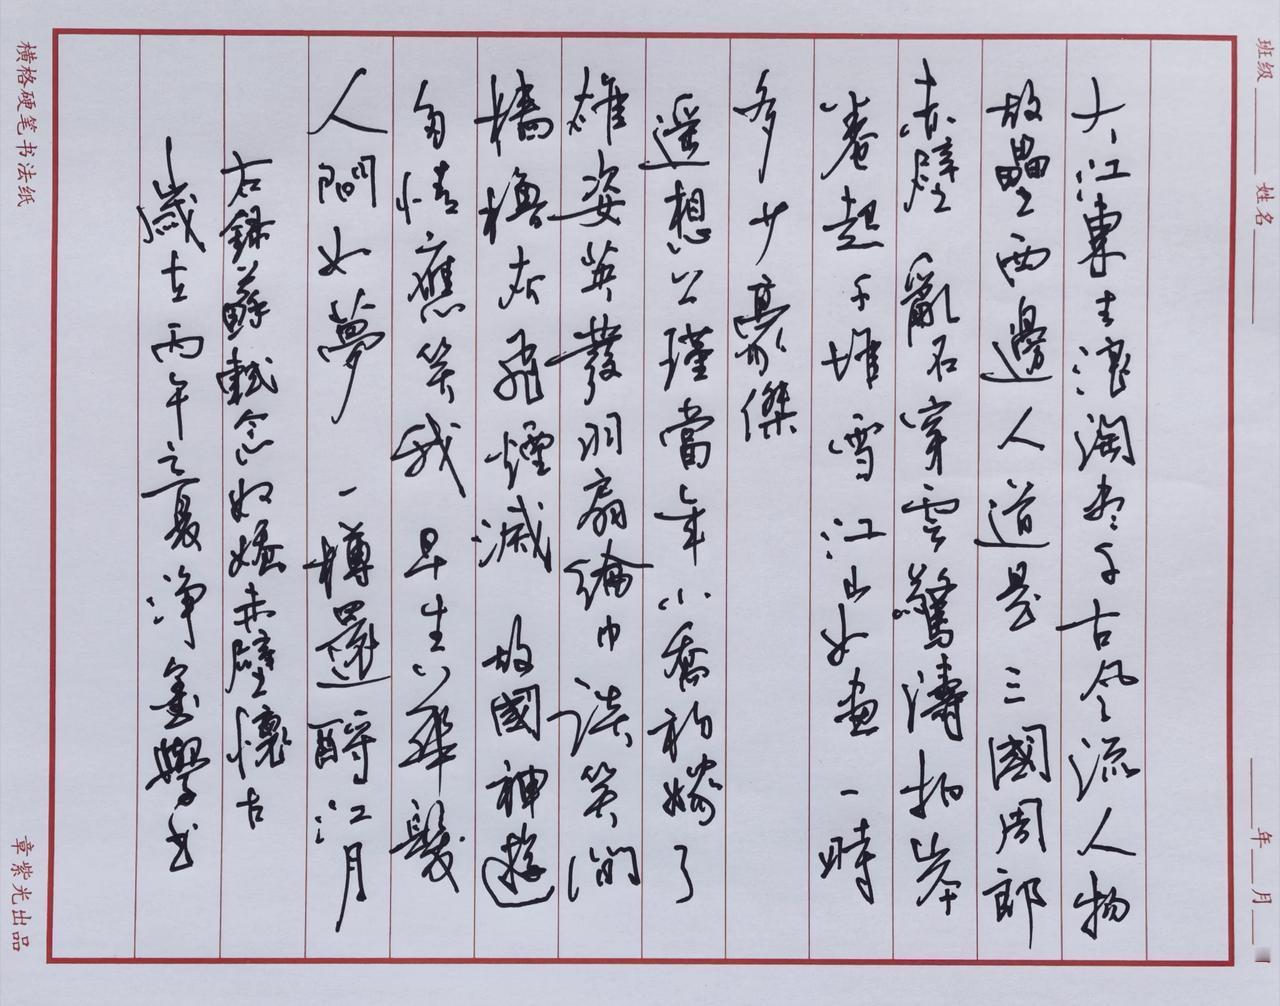 班级 姓名 年 月
大江東去浪淘盡千古風流人物
故壘西邊人道是三國周郎
赤壁 亂石穿雲驚濤拍岸
捲起千堆雪江山如畫一時
多少豪傑
遥想公瑾當年小喬初嫁了
雄姿英發羽扇綸巾談笑間
檣櫓灰飛煙滅 故國神遊
多情應笑我早生華髮
人間如夢 一樽還酹江月
右録蘇軾念奴嬌赤壁懷古
歲在丙午立夏淨 學書
橫格硬笔书法纸 章紫光出品